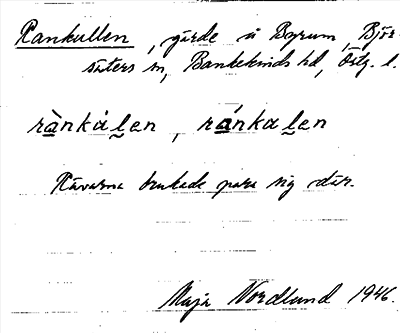 Rankullen, gärde i Byrum, Björ-
säters sn, Bankekinds hd, Östg. l.
rànkálen, ránkalen
Rävarna brukade para sig där.
Maja Nordlund 1946.